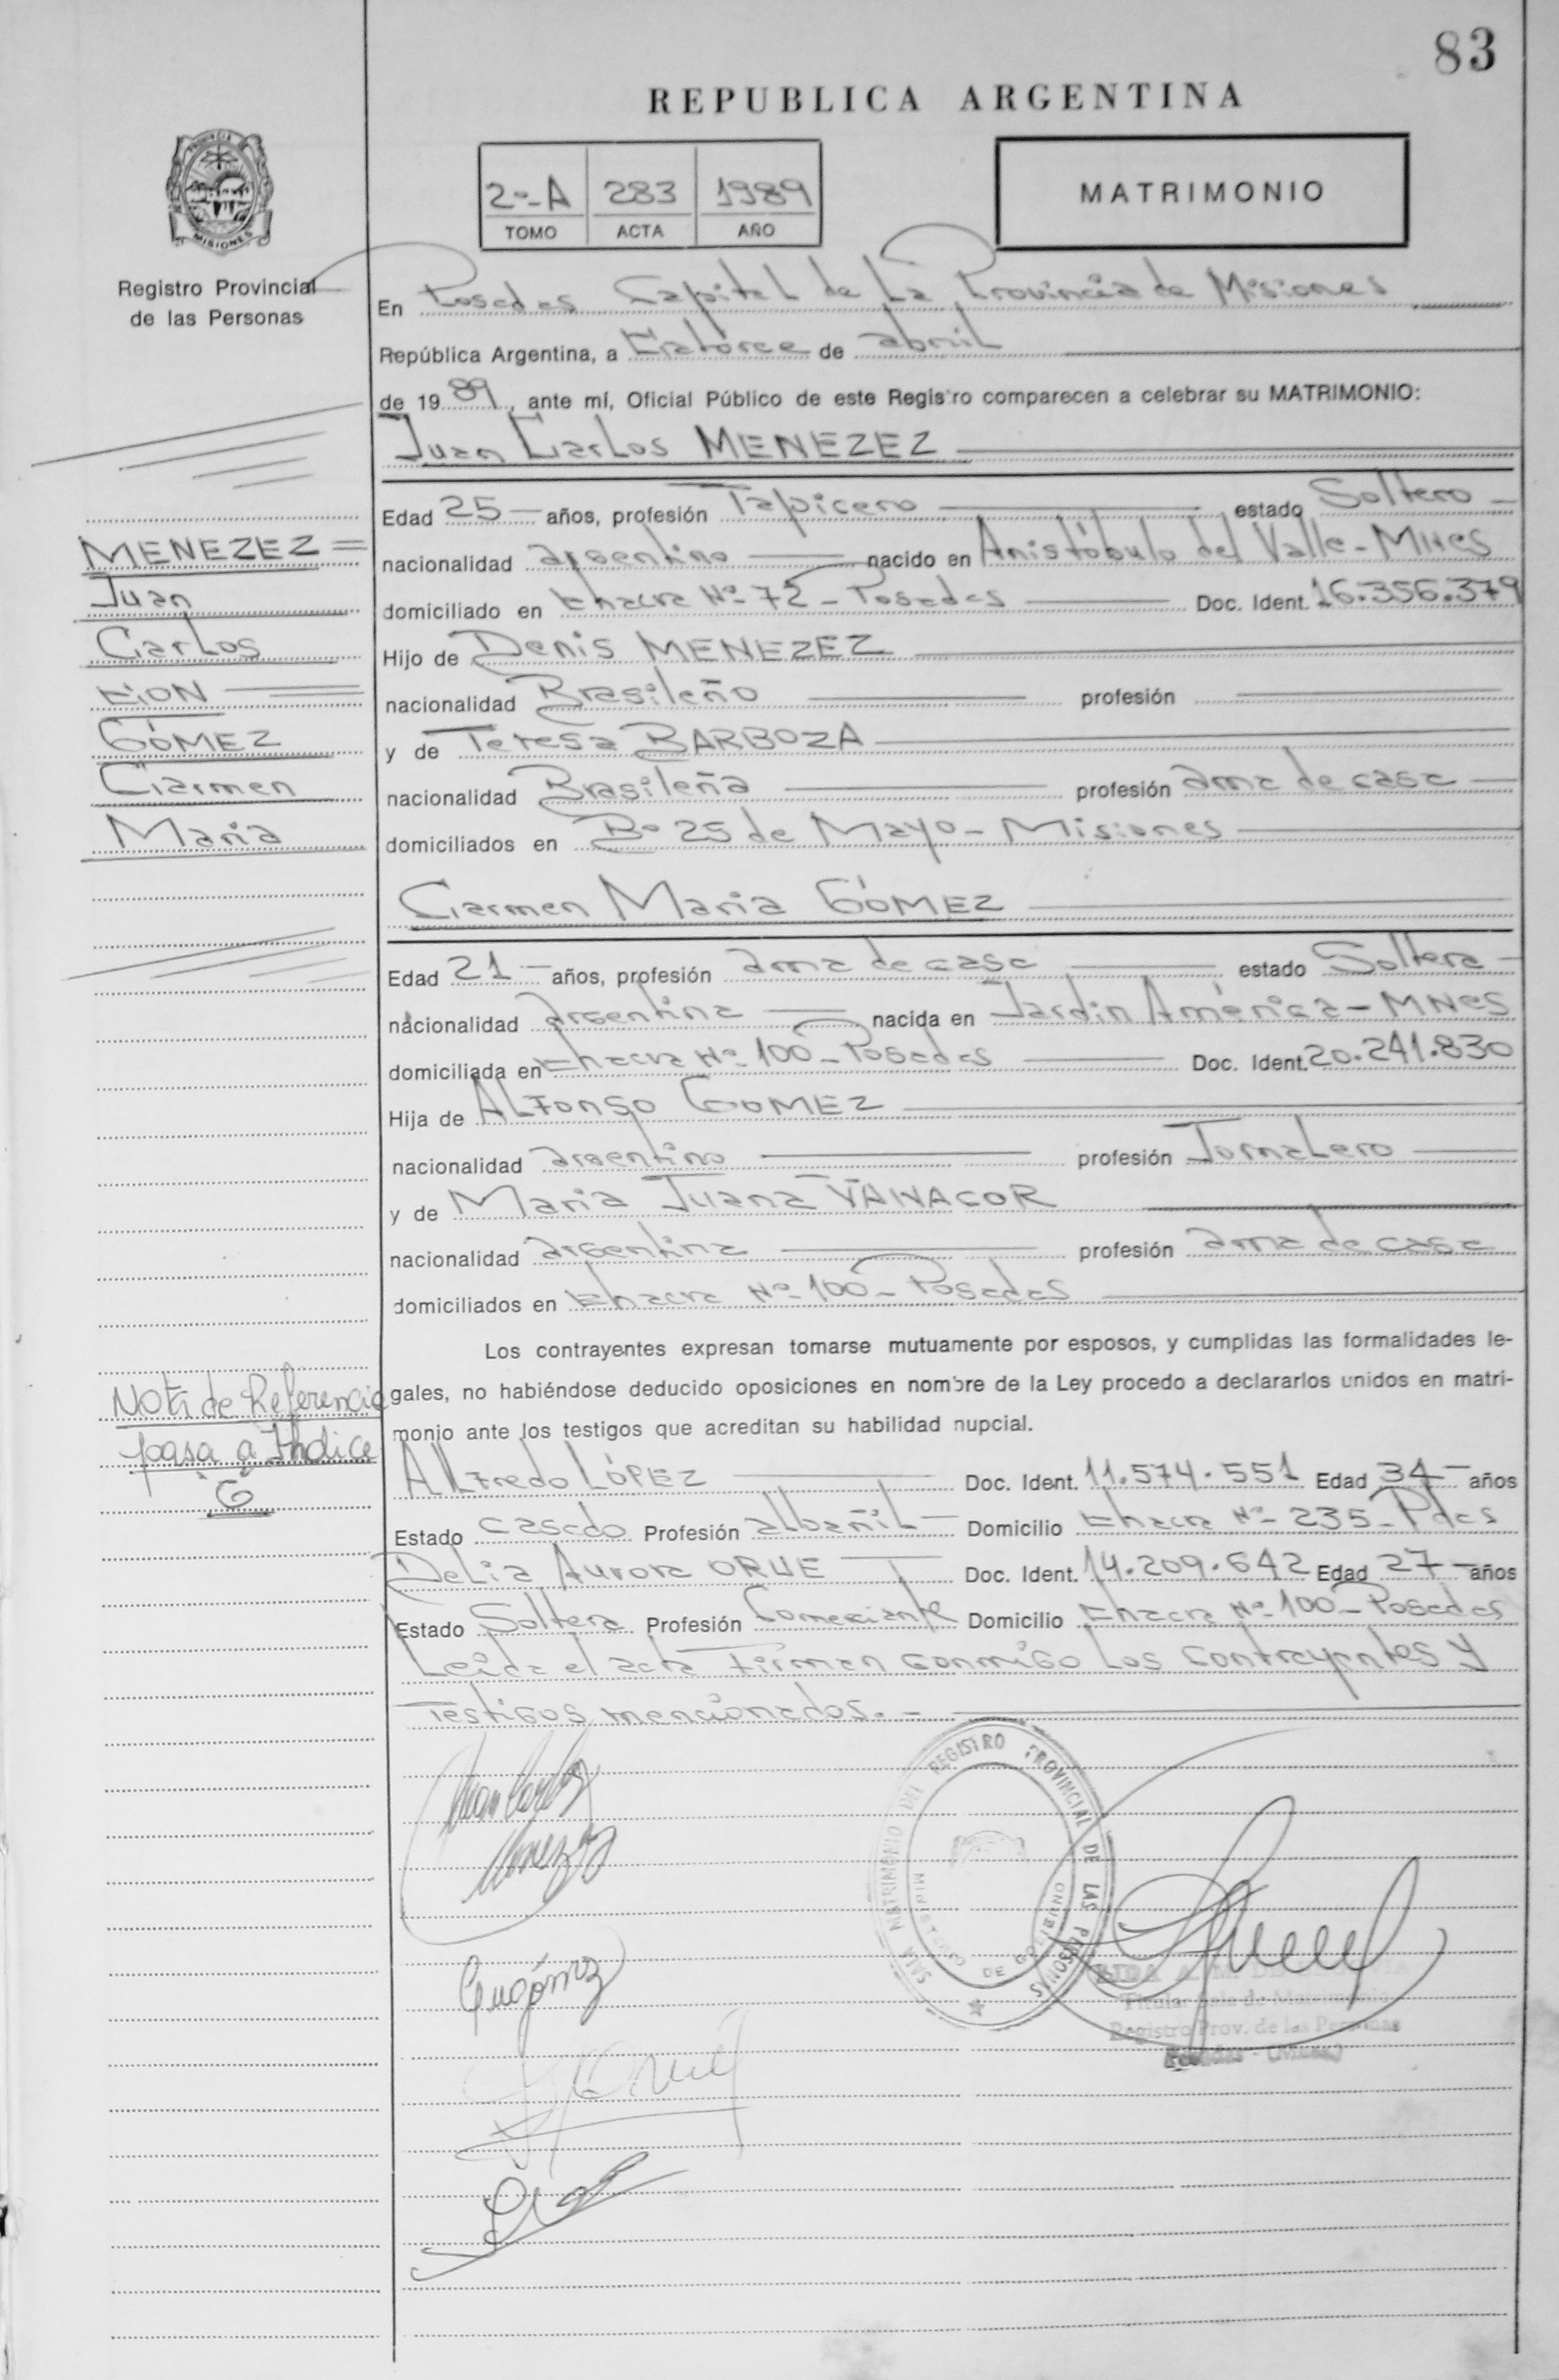 83
REPUBLICA ARGENTINA
PROVINCIA
MISIONES
Registro Provincial
de las Personas
2º-A 283 1989
TOMO ACTA AÑO
MATRIMONIO
En Posadas Capital de La Provincia de Misiones
República Argentina, a Catorce de abril
de 1989, ante mí, Oficial Público de este Registro comparecen a celebrar su MATRIMONIO:
Juan Carlos MENEZEZ
Edad 25 años, profesión Tapicero estado Soltero
nacionalidad argentino nacido en Aristóbulo del Valle - Mnes
domiciliado en Chacra Nº 72 - Posadas Doc. Ident. 16.356.379
Hijo de Denis MENEZEZ
nacionalidad Brasileño profesión
y de Teresa BARBOZA
nacionalidad Brasileña profesión ama de casa
domiciliados en Bº 25 de Mayo - Misiones
Carmen Maria GÓMEZ
Edad 21 años, profesión ama de casa estado Soltera
nacionalidad argentina nacida en Jardin América - MNes
domiciliada en Chacra Nº 100 - Posadas Doc. Ident. 20.241.830
Hija de ALFonso GOMEZ
nacionalidad argentino profesión JornaLero
y de Maria Juana VANACOR
nacionalidad argentina profesión ama de casa
domiciliados en Chacra Nº 100 - Posadas
Los contrayentes expresan tomarse mutuamente por esposos, y cumplidas las formalidades le-
gales, no habiéndose deducido oposiciones en nombre de la Ley procedo a declararlos unidos en matri-
monio ante los testigos que acreditan su habilidad nupcial.
ALFredo LÓPEZ Doc. Ident. 11.574.551 Edad 34 años
Estado casado Profesión albañil Domicilio Chacra Nº 235 - Pdas
DeLia Aurora ORUE Doc. Ident. 14.209.642 Edad 27 años
Estado Soltera Profesión Comerciante Domicilio Chacra Nº 100 - Posadas
Leida el acta Firman conmigo Los Contrayentes y
Testigos mencionados. -
MENEZEZ
Juan
Carlos
CON
GÓMEZ
Carmen
Maria
Nota de Referencia
pasa a Indice
"G"
Juan Carlos
Menezez
SALA MATRIMONIO DEL REGISTRO PROVINCIAL DE LAS PERSONAS
MINISTERIO DE GOBIERNO
Titular Sala de Matrimonio
Registro Prov. de las Personas
Posadas - (Mnes.)